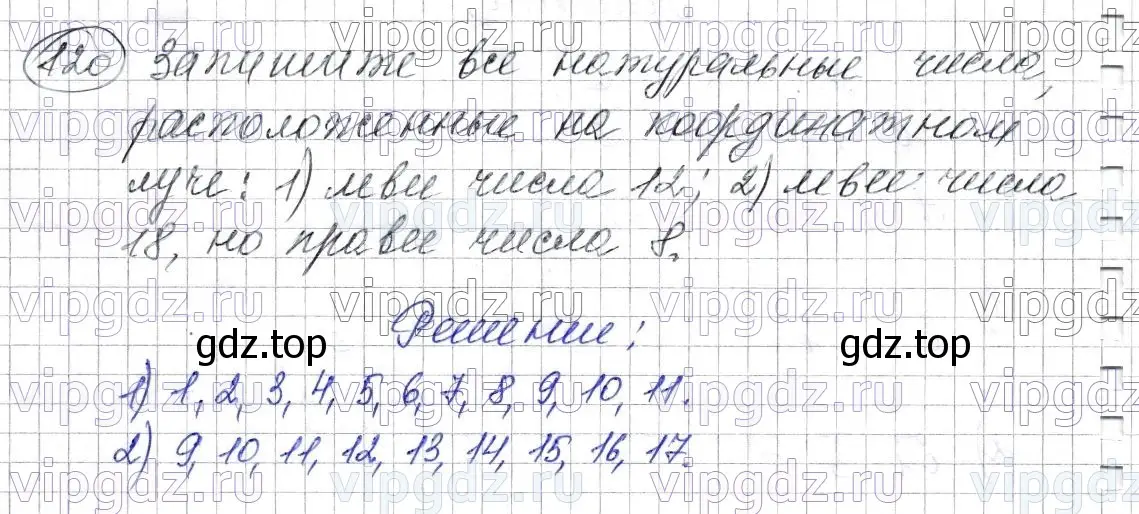 120 Запишите все натуральные числа,
расположенные на координатном
луче: 1) левее числа 12; 2) левее числа
18, но правее числа 8.
Решение:
gdz.top gdz.top
1) 1, 2, 3, 4, 5, 6, 7, 8, 9, 10, 11.
2) 9, 10, 11, 12, 13, 14, 15, 16, 17.
vipgdz.ru